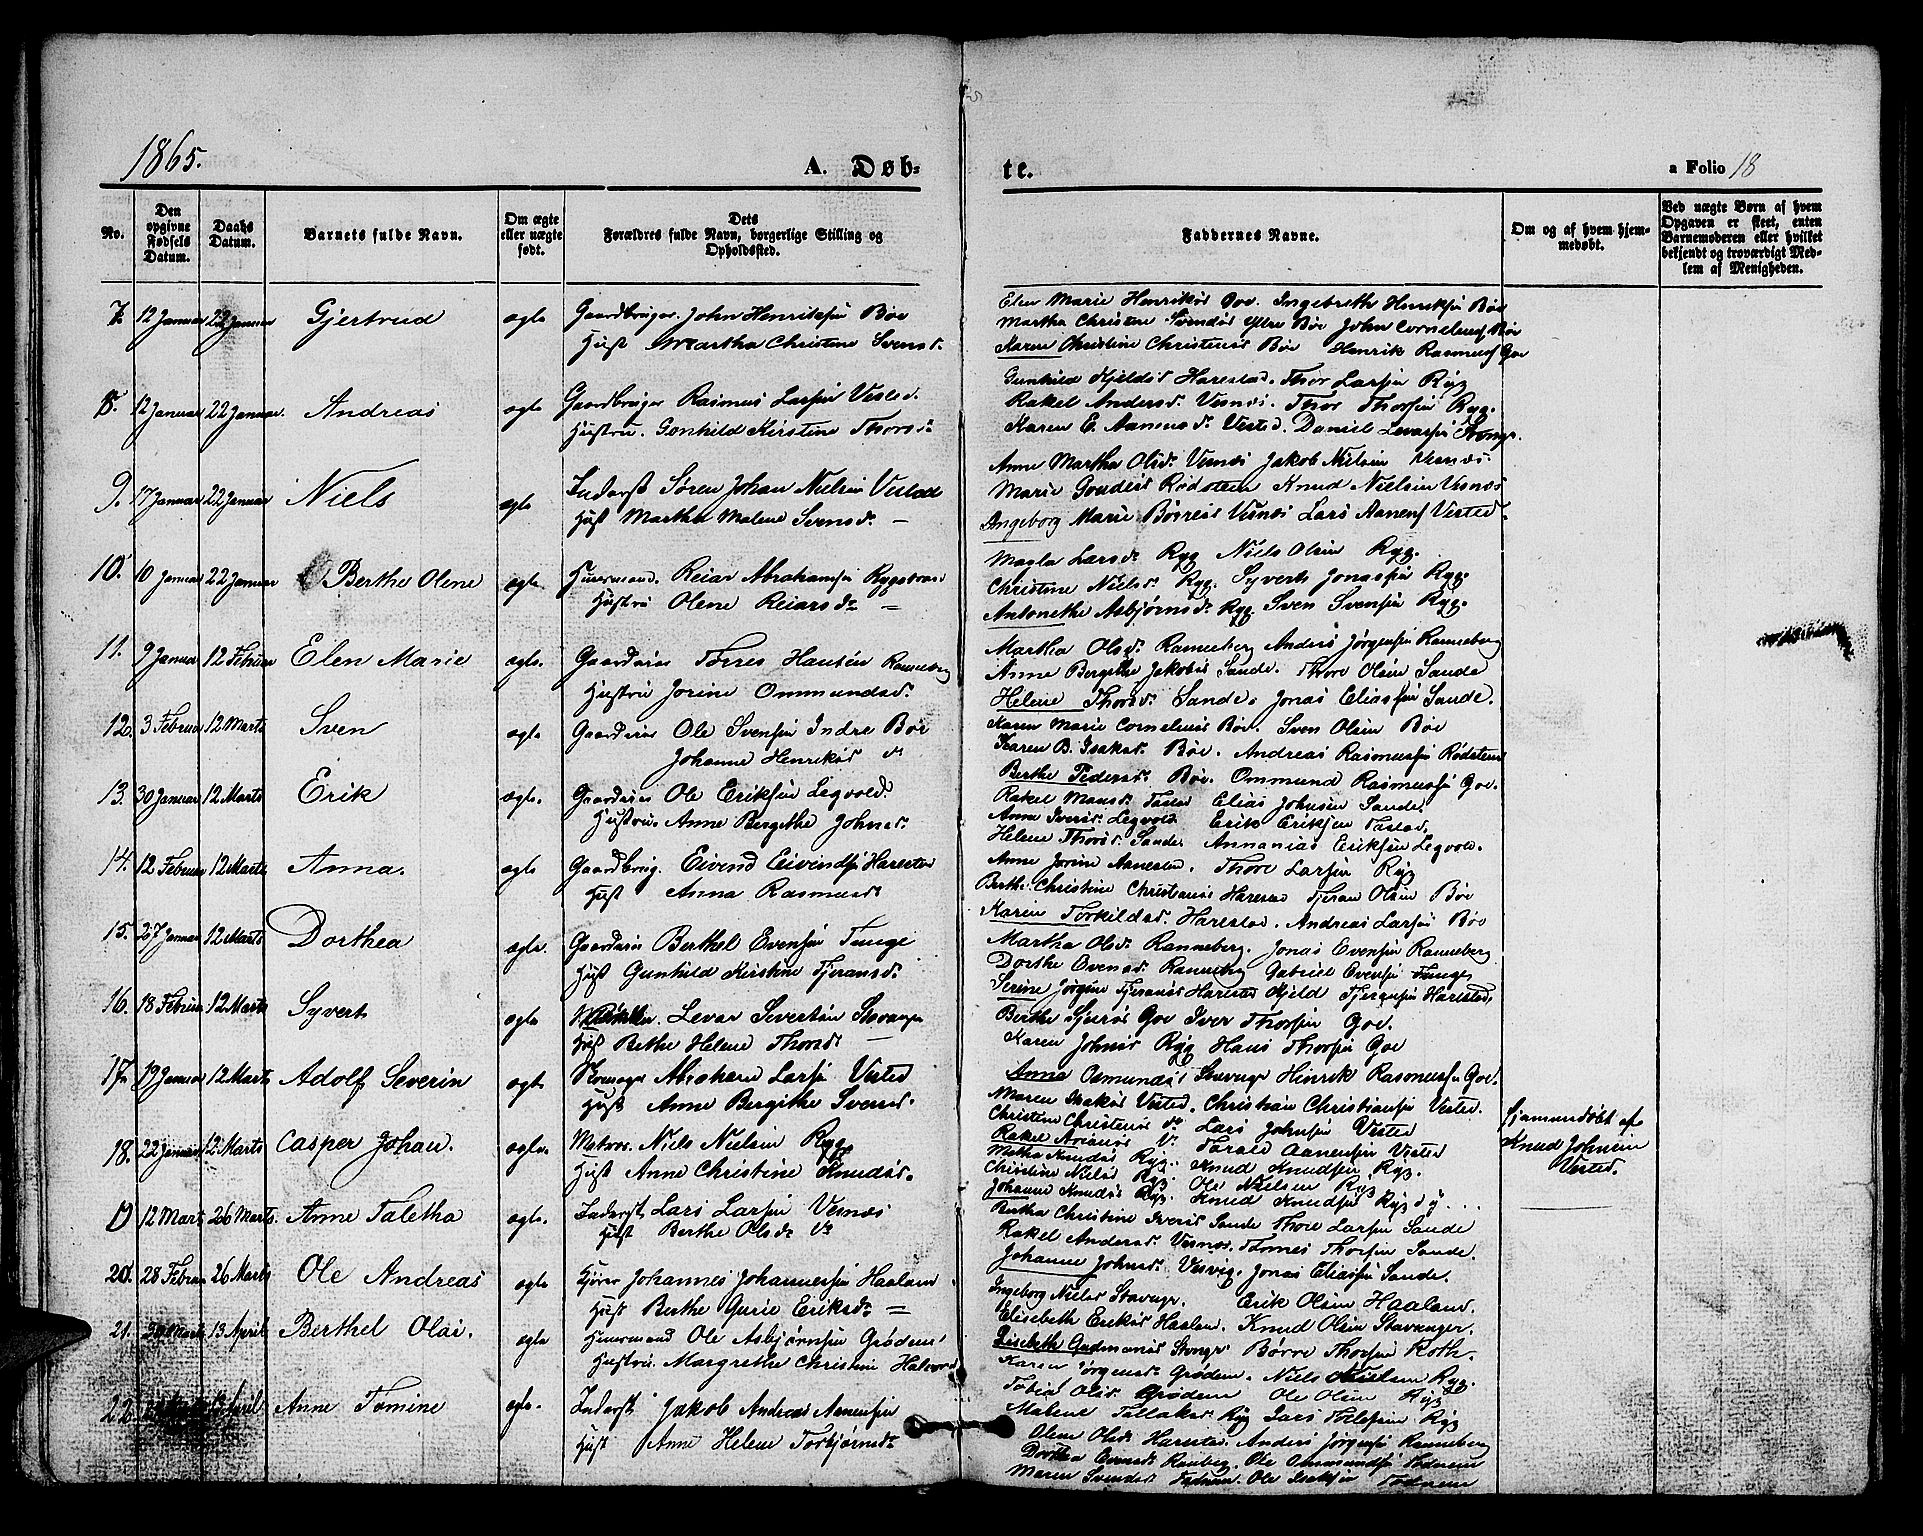 1865.
A. Døb-
te.
a Folio 18
No.
Den opgivne Fødsels Datum.
Daabs Datum.
Barnets fulde Navn.
Om ægte eller uægte født.
Dets Forældres fulde Navn, borgerlige Stilling og Opholdssted.
Faddernes Navne.
Om og af hvem hjemmedøbt.
Ved uægte Børn af hvem Opgaven er skeet, enten Barnemoderen eller hvilket bekjendt og troværdigt Medlem af Menigheden.
7. 12 Januar 22 Januar Gjertrud ægte Gaardbruger John Henriksen Bøe
Hust Martha Christine Svensd.
Elen Marie Henriksd Goe. Ingebreth Henriksen Bøe
Martha Christine Svendsd Ytre Bøe John Cornelius Bøe
Karen Christine Christensd Bøe Henrik Rasmus Goe
8. 12 Januar 22 Januar. Andreas ægte Gaardbruger Rasmus Larsen Vested.
Hustru. Gonhild Kirstine Thorsd.
Gunhild Kjeldsd Harestad. Thor Larsen Ryg
Rakel Andersd. Vesnes. Thor Thorsen Ryg.
Karen E. Aanensd. Vested. Daniel Levarsen
9. 17 Januar 22 Januar Niels ægte Inderst Søren Johan Nielsen Vestad
Hust Martha Malene Svensd. —
Anne Martha Olsd. Vesnes Jakob Nielsen Vesnes.
Marie Rødsteen Knud Nielsen Vesnes
Ingeborg Marie Vesnes Lars Aanens Vested.
10. 10 Januar 22 Januar Berthe Olene ægte Huusmand. Reiar Abrahamsen
Hustru Olene Reiarsd. =
Magla Larsd. Ryg Niels Olsen Ryg.
Christine Nielsd. Ryg. Syvert Jonasen Ryg.
Antonethe Asbjørnsd. Ryg Sven Svensen Ryg.
11. 9 Januar 12 Februar Elen Marie ægte. Gaardmand Torres Hansen Ranneberg
Hustru Jorine Ommundsd.
Martha Olsd. Ranneberg Anders Jørgensen Ranneberg
Anne Bergithe Jakobsd Sande. Thore Olsen Sande
Helene Thorsd. Sande. Jonas Eliassen Sande.
12. 3 Februar 12 Marts Sven ægte Ole Svensen Indre Bøe
Johanne Henriksd
Karen Marie Cornelius Bøe. Sven Olsen Bøe
Karen B. Isaksd. Bøe. Andreas Rasmussen Rødsteen
Berthe Pedersd. Bøe. Ommund Rasmussen Goe.
13. 30 Januar 12 Marts Erik ægte. Ole Eriksen Legvold.
Hustru. Anne Bergithe Johnsd.
Rakel Monsd. Elias Johnsen Sande.
Anna Iversd. Legvold Erik Eriksen Tastad.
Helene Thorsd. Sande. Annanias Eriksen Legvold.
14. 12 Februar 12 Marts Anna. ægte Gaardbrug. Eivend Eivindsen Harestad
Hust Anna Rasmusd.
Anne Jorine Thore Larsen Ryg
Berthe Christine Christiansd Harestad Tjeran Olsen Bøe
Karen Torkildsd. Harestad. Andreas Larsen Bøe
15. 27 Januar 12 Marts Dorthea ægte. Berthel Evensen Tunge
Hust Gunhild Kirstine Tjeransd.
Martha Olsd. Ranneberg. Jonas Evensen Ranneberg
Dorthe Evensd. Ranneberg Gabriel Evensen Tunge
Serine Jørgine Tjeransd Harestad Kjeld Tjeransen Harestad,
16. 18 Februar 12 Marts Syvert ægte Levar Severtsen Stavanger
Hust Bethe Helene Thorsd —
Berthe Sjursd Goe Iver Thorsen Goe.
Karen Johnsd Ryg Hans Thorsen Goe
17. 19 Januar 12 Marts Adolf Severin ægte Skomager Abraham Larsen Vested
Hust Anne Bergithe Svensd.
Anna Osmundsd Stavangr Hinrik Rasmussen Goe.
Maren Isaksd Vested. Christian Christiansen Vested.
Christine Christensd do. Lars Johnsen Vested
18. 22 Januar 12 Marts Casper Johan. ægte. Matros. Niels Nielsen Ryg
Hust Anne Christine Knudsd.
Rakel do. Torald Aanensen Vested
Metha Knudsd Ryg. Knud Knudsen Ryg.
Christine Nielsd Ryg. Ole Nielsen Ryg
Johanne Knudsd Ryg. Knud Knudsen Ryg d y . . .
Hjemmedøbt af
Knud Johnsen
Vested.
19 12 Marts 26 Marts. Anne Taletha ægte. Inderst Lars Larsen Vesnes
Hust Berthe Olsd. do
Bertha Christine Iversd Sande Thore Larsen Sande
Rakel Andersd. Vesnes. Tomes Thorsen Sande.
Johanne Johnsd. Vesvig. Jonas Eliassen Sande.
20. 28 Februar 26 Marts Ole Andreas ægte Johannes Johannessen Haaland
Hust Berthe Gurie Eriksd. =
Ingeborg Nielsd Stavangr. Erik Olsen Haaland.
Elisebeth Eriksd Haaland. Knud Olsen Stavanger.
Lisebeth Gudmansd Børre Thorsen Roth.
21. 13 April Berthel Olai. ægte Huusmand Ole Asbjørnsen Grødem
Hustru. Margrethe Christine Halvorsd
Karen Jørgensd. Grødem. Niels Nielsen Ryg.
Tobia Olsd. Grødem Ole Olsen Ryg
Malene Tallaksd. Ryg Lars Ryg
22. 13 April Anne Tomine ægte. Inderst Jakob Andreas Aanensen
Hust Anne Helene Torbjørnsd.
Olene Olsd. Harestad. Anders Jørgensen Ranneberg
Dorthea Evensd. Ranberg. Ole Ommundsen Todneim
Maren Svendsd. Todneim. Ole Isaksen Todneim